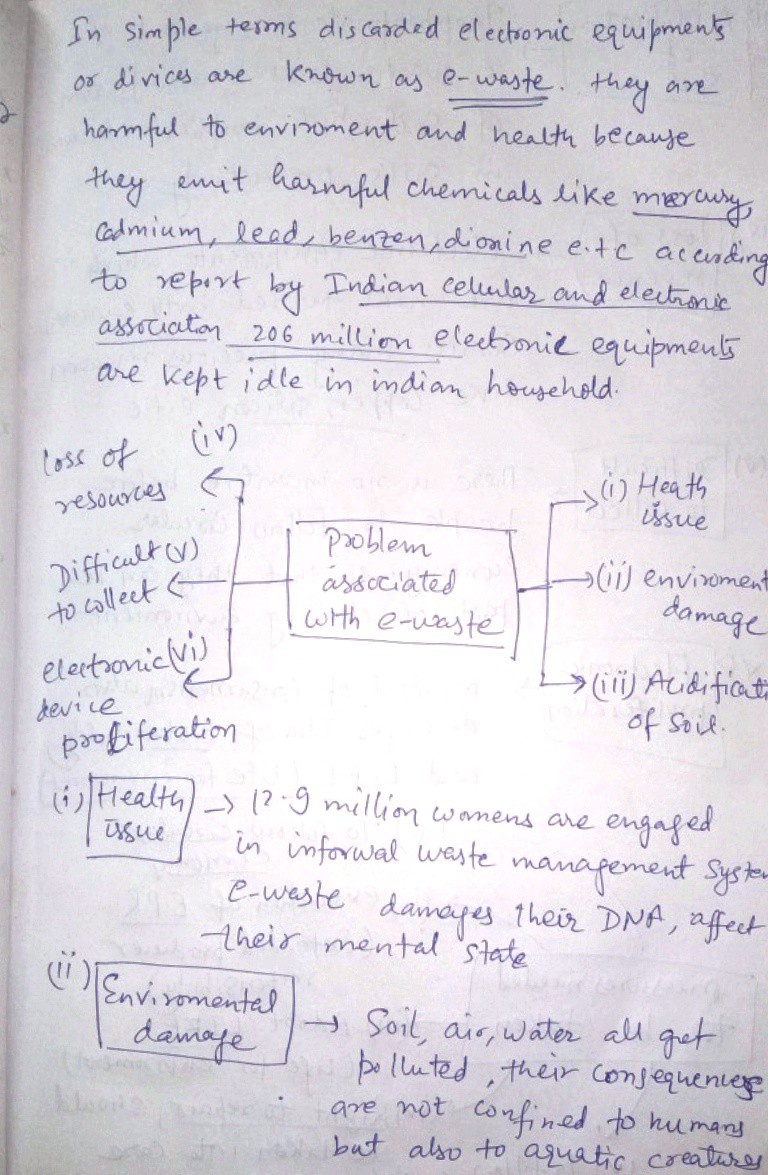 In simple terms discarded electronic equipments
or divices are known as e-waste. they are
harmful to enviroment and health because
they emit harmful chemicals like mercury,
cadmium, lead, benzen, dioxine e.t.c according
to report by Indian cellular and electronic
association 206 million electronic equipments
are kept idle in indian household.
loss of (iv)
resources
Difficult (v)
to collect
electronic (vi)
device
proliferation
problem
associated
with e-waste
(i) Heath
issue
(ii) enviroment
damage
(iii) Acidificati
of soil.
(i) Health
issue → 12.9 million womens are engaged
in informal waste management system
e-waste damages their DNA, affect
their mental state
(ii) Enviromental
damage → Soil, air, water all get
polluted, their consequences
are not confined to humans
but also to aquatic creatures